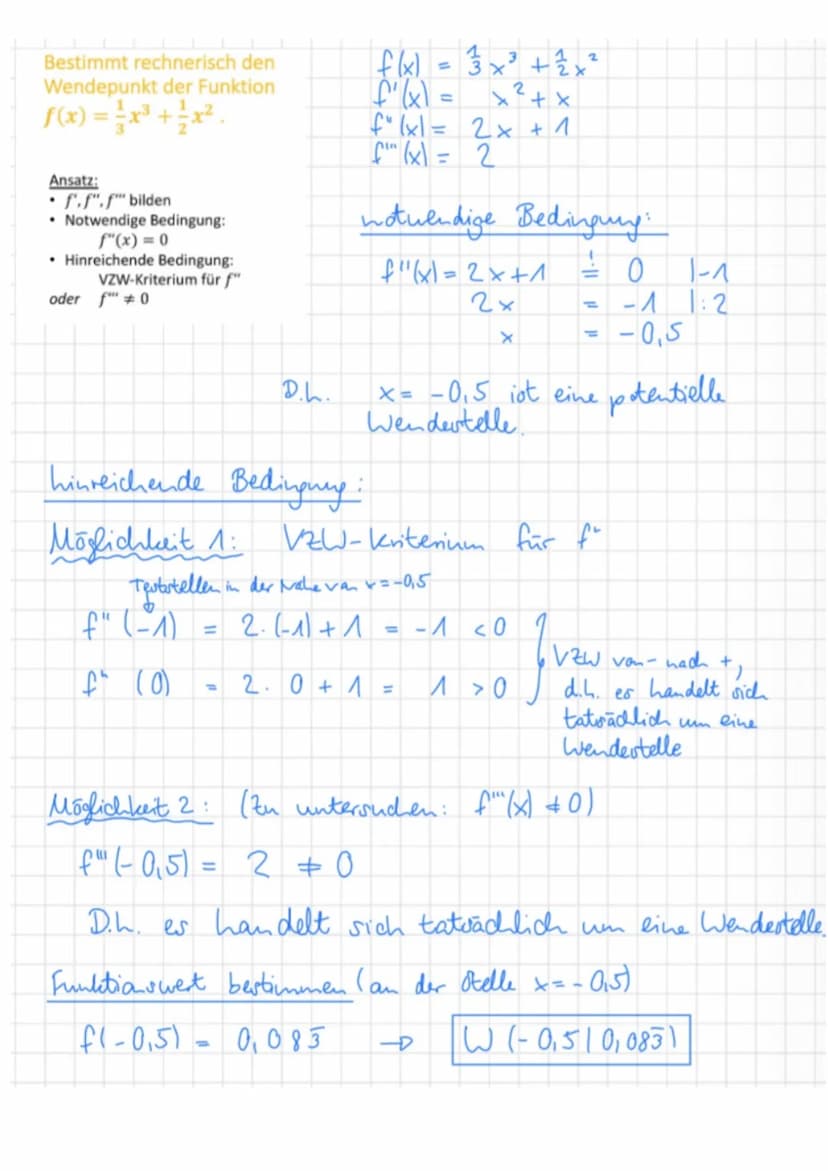 Bestimmt rechnerisch den
Wendepunkt der Funktion
f(x) = 1/3 x³ + 1/2 x² .
Ansatz:
• f', f'', f''' bilden
• Notwendige Bedingung:
f''(x) = 0
• Hinreichende Bedingung:
VZW-Kriterium für f''
oder f''' ≠ 0
f(x) = 1/3 x³ + 1/2 x²
f'(x) = x² + x
f''(x) = 2x + 1
f'''(x) = 2
notwendige Bedingung:
f''(x) = 2x+1 =! 0 |-1
2x = -1 |:2
x = -0,5
D.h. x = -0,5 ist eine potentielle
Wendestelle.
hinreichende Bedingung:
Möglichkeit 1: VZW-Kriterium für f''
Teststellen in der Nähe von x = -0,5
f''(-1) = 2·(-1)+1 = -1 < 0
f''(0) = 2·0+1 = 1 > 0
VZW von - nach +,
d.h. es handelt sich
tatsächlich um eine
Wendestelle
Möglichkeit 2: (Zu untersuchen: f'''(x) ≠ 0)
f'''(-0,5) = 2 ≠ 0
D.h. es handelt sich tatsächlich um eine Wendestelle.
Funktionswert bestimmen (an der Stelle x = -0,5)
f(-0,5) = 0,083̅ → W (-0,5 | 0,083̅)